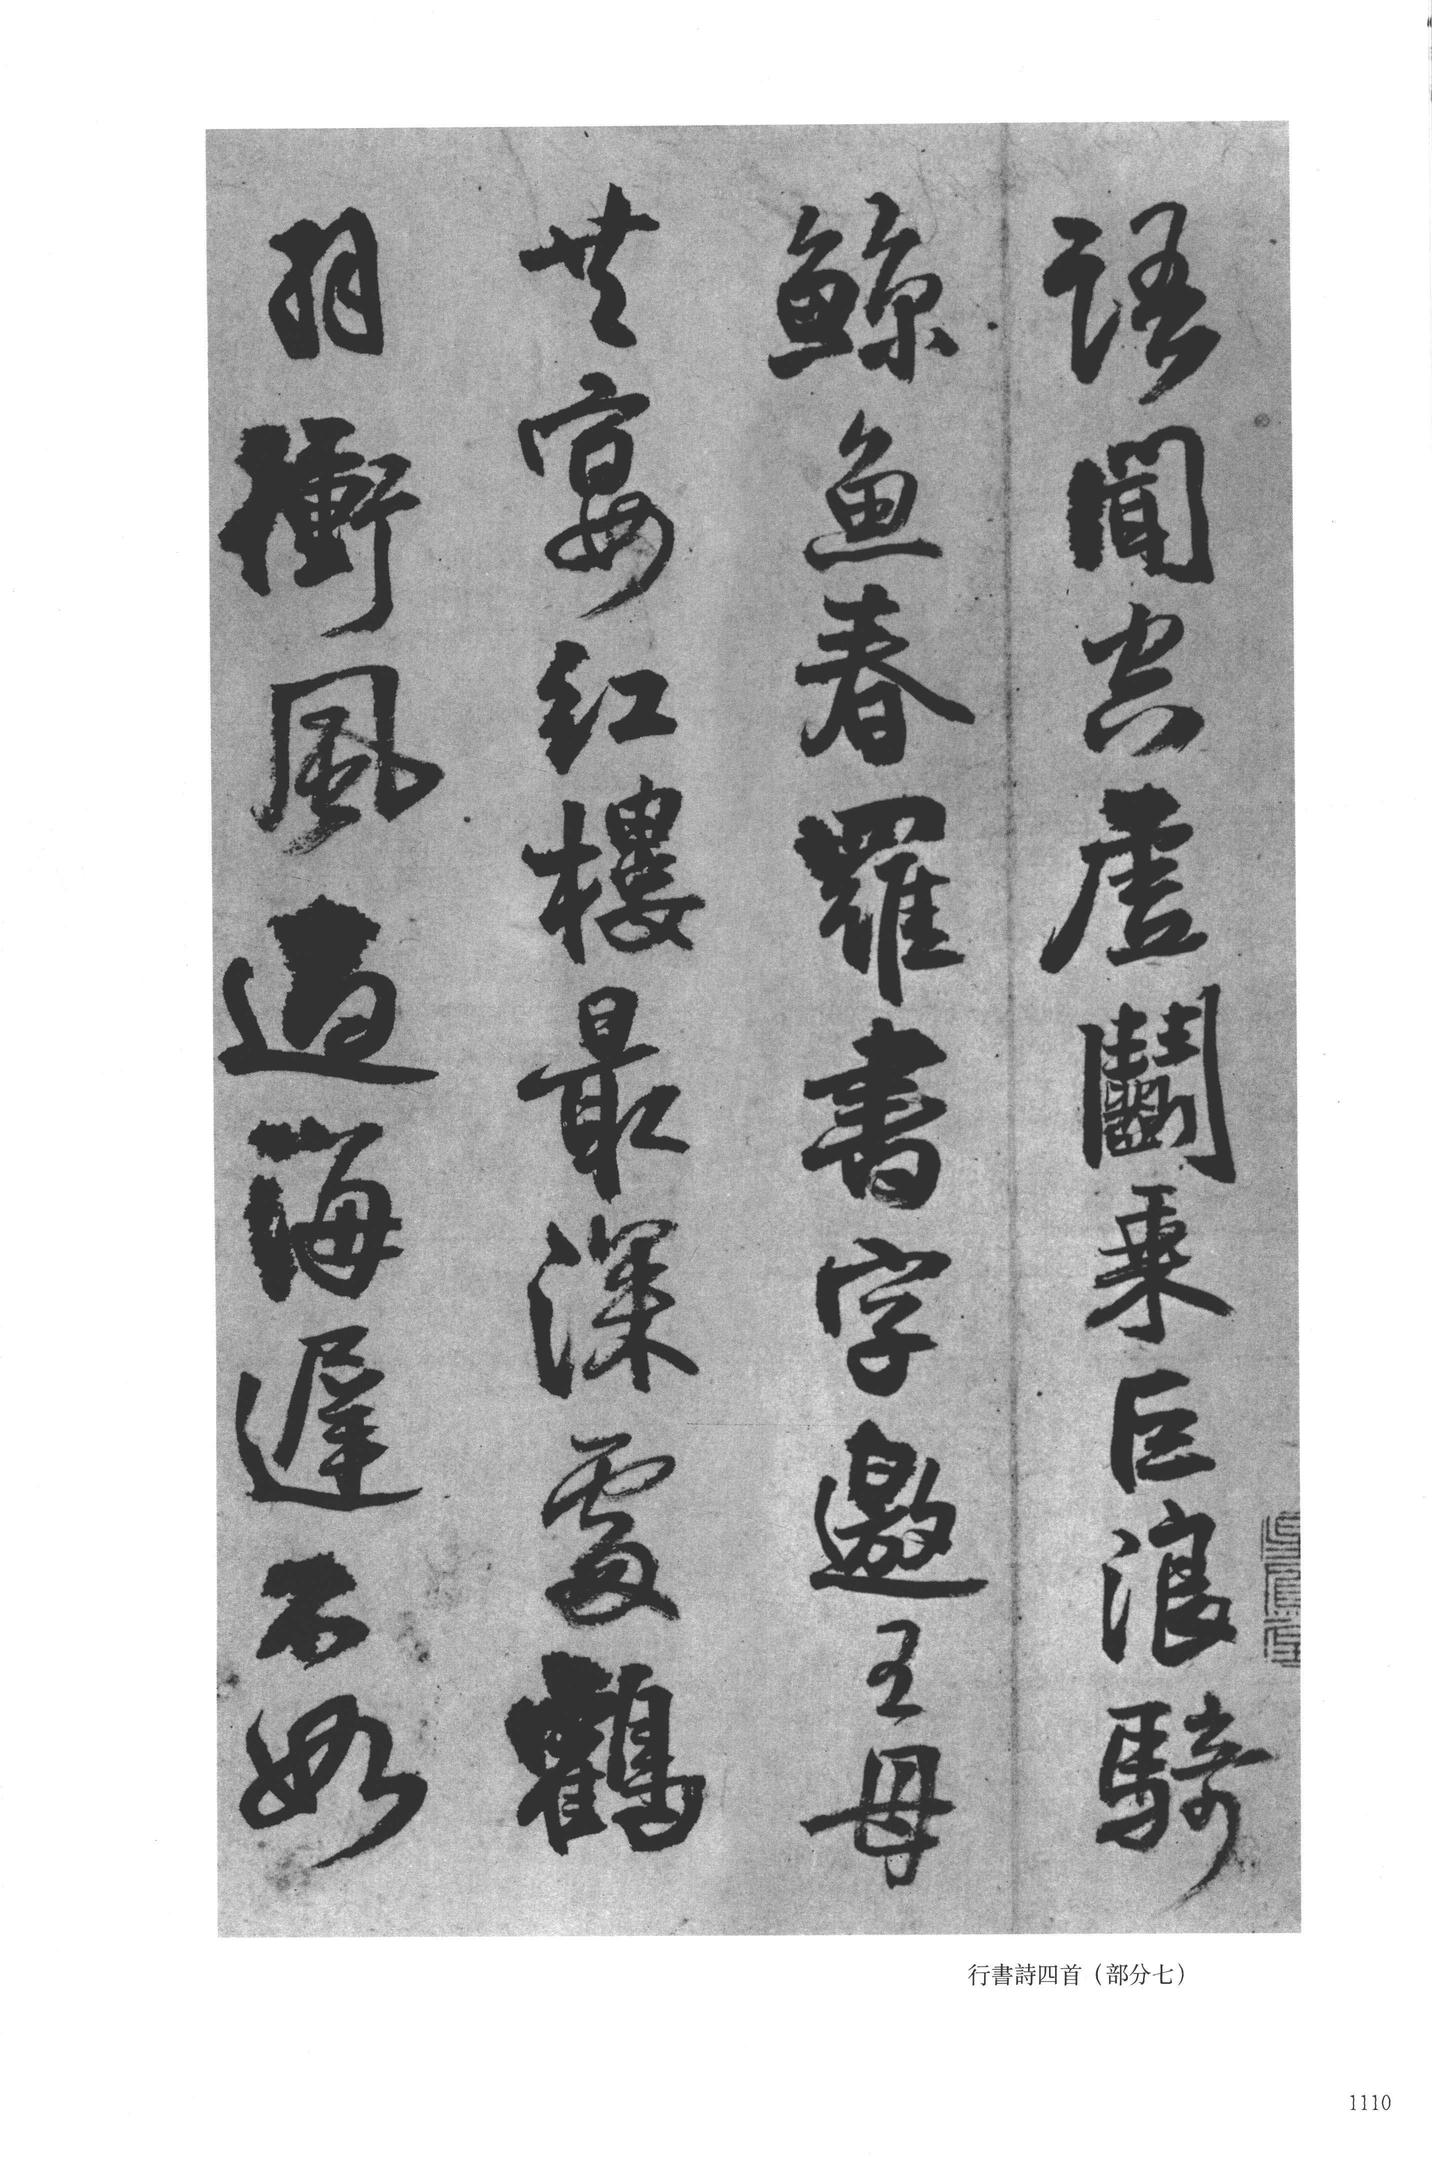 語聞空虛鬭乘巨浪騎
鯨魚春羅書字邀王母
共宴紅樓最深處鶴
羽衝風過海遲不如
行書詩四首（部分七）
1110